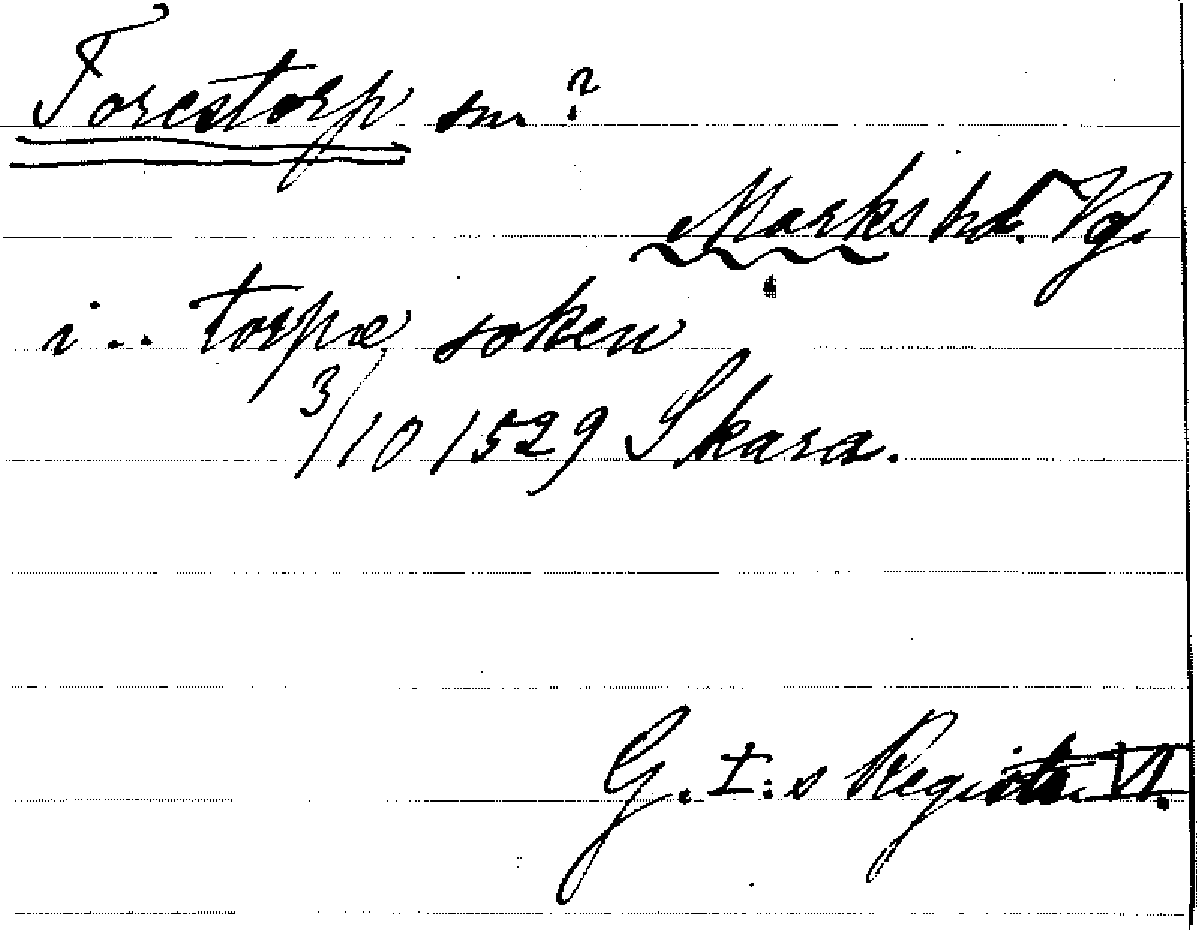 Torestorp sn. ?
Marks hd. Vg.
i .. torpæ soken
3/10 1529 Skara.
G. I:s Registr. VI.